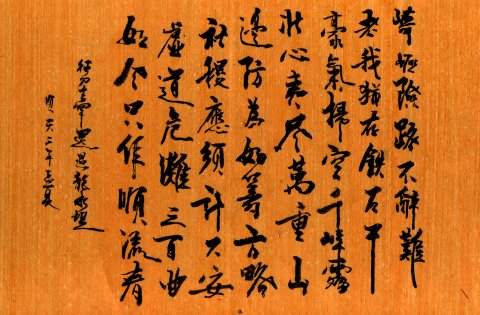 崎嶇險路不辭難
老我猶存鐵石干
豪氣掃空千嶂霧
壯心夷尽萬重山
邊防為好籌方略
社稷應須計久安
虛道危灘三百曲
如今只作順流看
征刁吉罕還過龍水堤